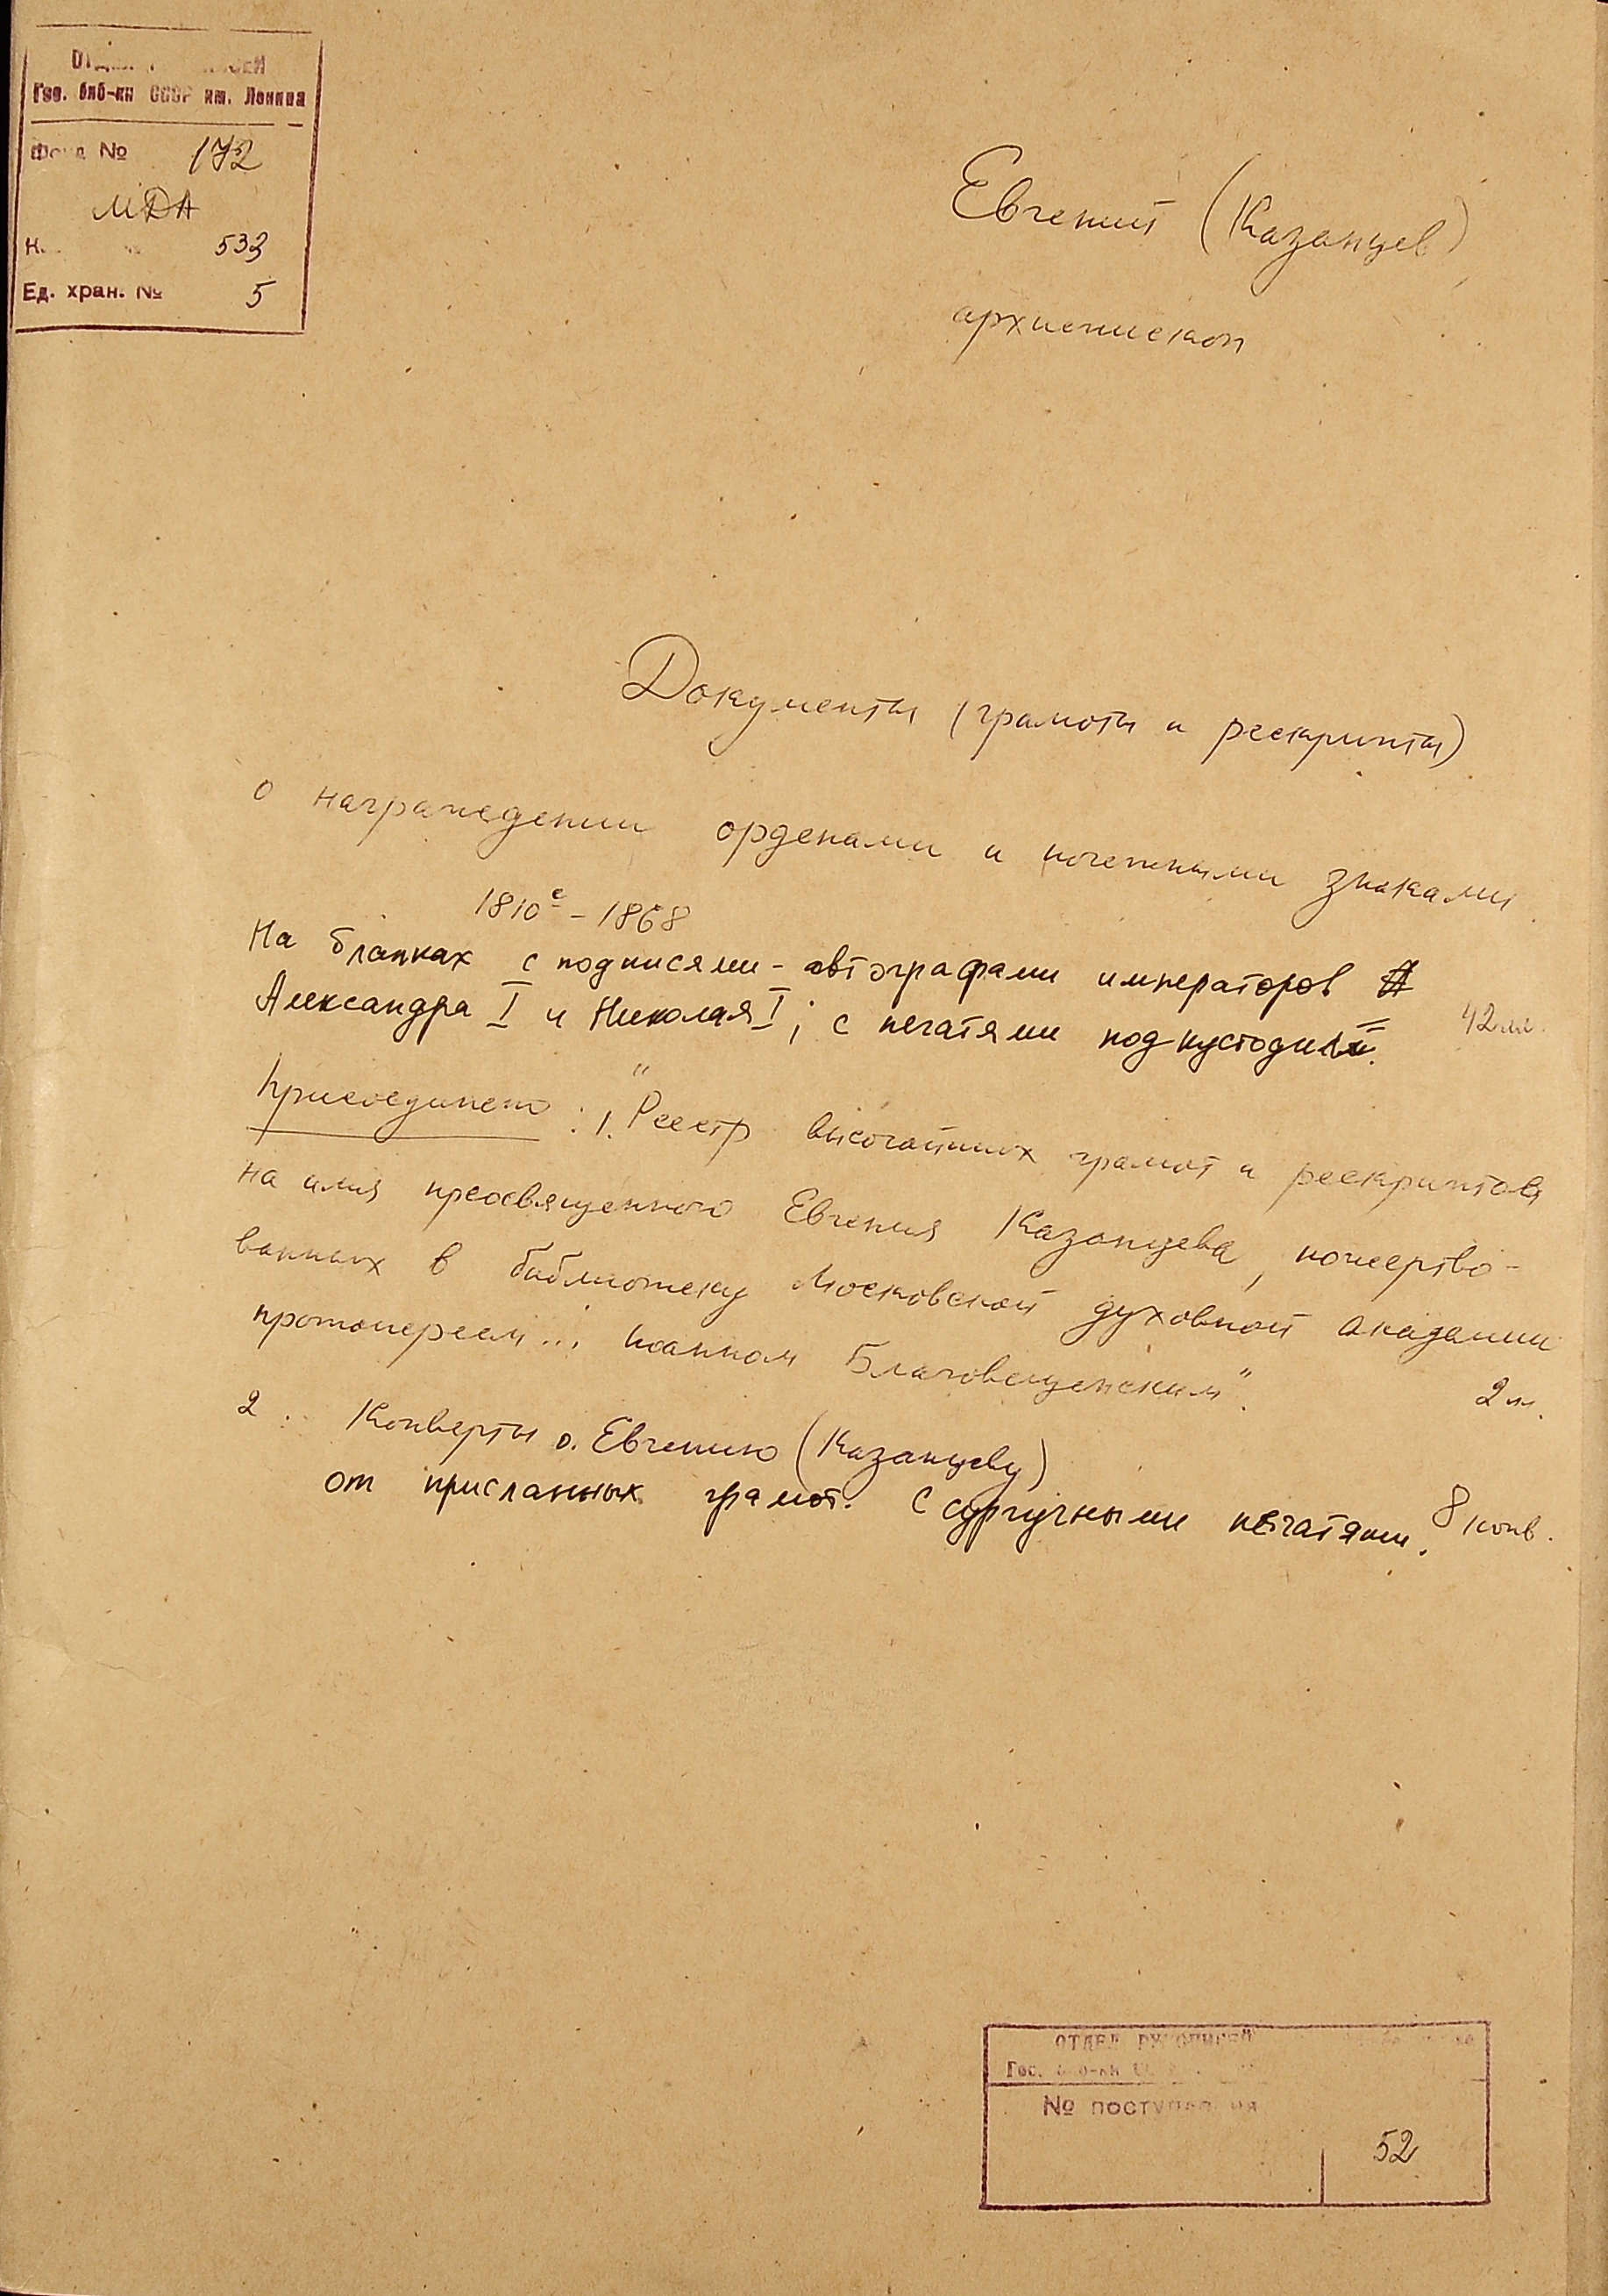 ОТДЕЛ РУКОПИСЕЙ
Гос. биб-ки СССР им. Ленина
Фонд № 172
МДА
533
Ед. хран. № 5
Евгений (Казанцев)
архиепископ
Документы (грамоты и рескрипты)
о награждении орденами и почетными знаками.
1810е - 1868
На бланках с подписями-автографами императоров
Александра I и Николая I; с печатями под кустодией.
42 лл.
Присоединено: 1. "Реестр высочайших грамот и рескриптов
на имя преосвященного Евгения Казанцева, пожертво-
ванных в библиотеку Московской духовной академии
протоиереем... Иоанном Благовещенским".
2 л.
2. Конверты о. Евгению (Казанцеву)
от присланных грамот. С сургучными печатями.
8 конв.
ОТДЕЛ РУКОПИСЕЙ
Гос. биб-ки
№ поступления
52